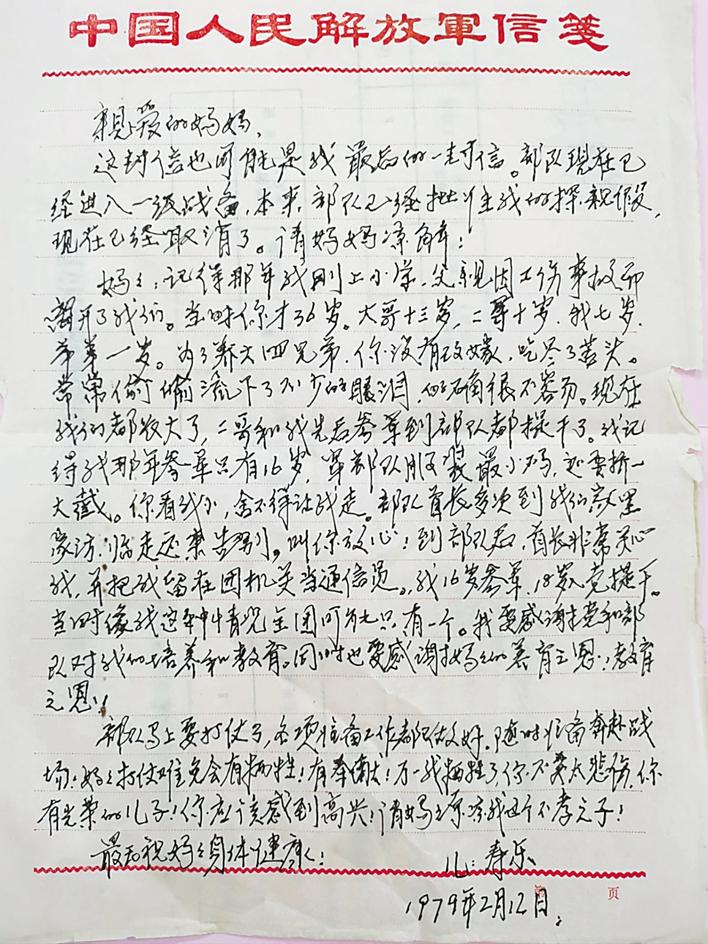 中国人民解放軍信箋
親爱的妈妈,
这封信也可能是我最后的一封信。部队现在已
经进入一级战备,本来,部队已经批准我的探親假,
现在已经取消了。请妈妈凉解!
妈々:记得那年我刚上小学,父親因工伤事故而
離开了我们。当时你才36岁。大哥十三岁,二哥十岁,我七岁,
弟弟一岁。为了养大四兄弟,你没有改嫁,吃尽了苦头。
常常偷偷流下了不少的眼泪,的确很不容易。现在
我们都长大了,二哥和我先后参军到部队都提干了。我记
得我那年参军只有16岁,穿部队服装最小码,还要折一
大截。你看我小,舍不得让我走。部队首长多次到我们家里
家访,临走还来告别,叫你放心!到部队后,首长非常关心
我,并把我留在团机关当通信员。我16岁参军,18岁入党提干。
当时像我这种情况全团可能只有一个。我要感谢党和部
队对我的培养和教育。同时也要感谢妈々的养育之恩!教育
之恩!
部队马上要打仗了,各项准备工作都已做好,随时准备奔赴战
场!妈々打仗难免会有牺牲!有奉献!万一我牺牲了,你不要太悲伤,你
有光荣的儿子!你应该感到高兴!请妈々原凉我这个不孝之子!
最后祝妈々身体健康!
儿:寿乐
页
1979年2月12日。